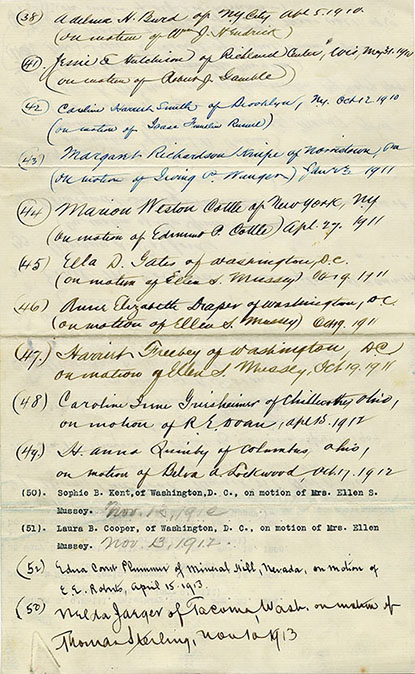 (38) Adelma H. Burd of NY City Apl 5. 1910.
(on motion of Wm J. Hendrick)
(41) Jessie E Hutchison of Richland Center, Wis, May 31, 1910
(on motion of Robert J. Gamble)
(42) Caroline Harriet Smith of Brooklyn, Ny. Oct 12 1910
(on motion of Isaac Franklin Russell)
(43) Margaret Richardson of Norristown, Pa
(on motion of Irving P. Wanger) Jan 1911
(44) Marion Weston Cottle of New York, Ny
(on motion of Edmund P. Cottle) Apl. 27. 1911
(45) Ella D. Gates of Washington, D.C.
(on motion of Ellen S. Mussey) Oct 19. 1911
(46) Anne Elizabeth Draper of Washington, DC
(on motion of Ellen S. Mussey) Oct 19. 1911
(47) Harriet Freebey of Washington, DC
on motion of Ellen S Mussey, Oct 19. 1911
(48) Caroline of Chillicothe, Ohio,
on motion of R E Doan, apl 15. 1912
(49) H. Anna Quinby of Columbus, Ohio,
on motion of Belva A. Lockwood, Oct. 17. 1912
(50). Sophie B. Kent, of Washington, D. C., on motion of Mrs. Ellen S.
Mussey. Nov. 1912
(51). Laura B. Cooper, of Washington, D. C., on motion of Mrs. Ellen
Mussey. Nov. 13, 1912.
(52) Edna Plummer of Mineral Hill, Nevada, on motion of
E. E. Roberts, April 15. 1913.
(50) Nelda Jaeger of Tacoma, Wash. on motion of
Thomas Sterling, Nov 10 1913